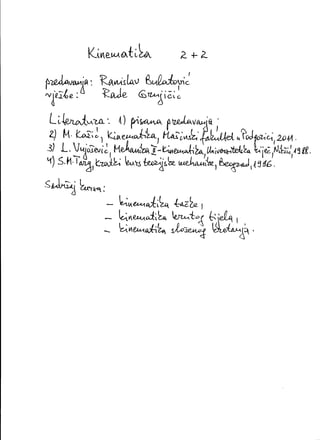 Kinematika 2+2
predavanja: Ranislav Bulatović
vježbe: Rade Grujičić
Literatura: 1) pisana predavanja;
2) M. Kažić, Kinematika, Mašinski fakultet, Podgorici, 2011.
3) L. Vujošević, Mehanika I-Kinematika, Univerzitetska riječ, Nikšić, 1988.
4) S.M. Targ, Kratki kurs teorijske mehanike, Beograd, 1986.
Sadržaj kursa:
– kinematika tačke,
– kinematika krutog tijela,
– kinematika složenog kretanja.